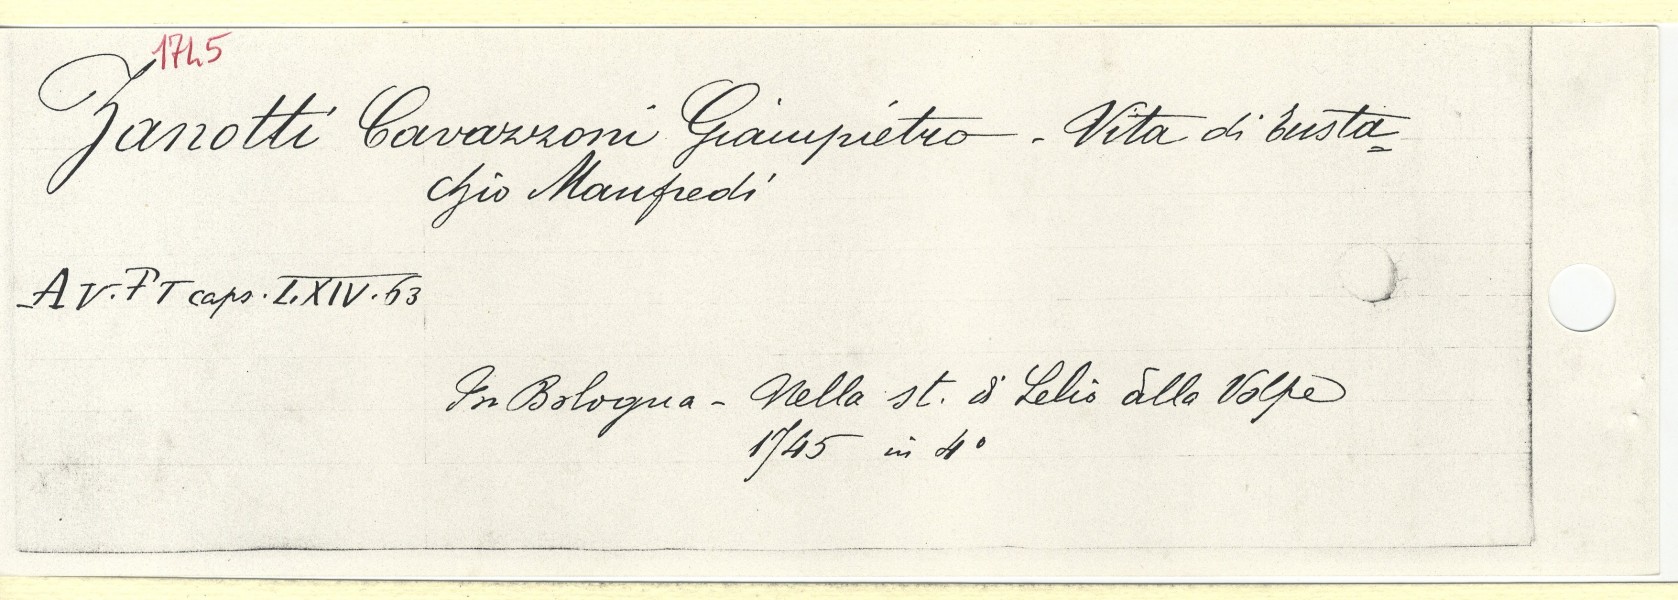 1745
Zanotti Cavazzoni Giampietro - Vita di Eusta=
chio Manfredi
A V. FT caps. LXIV. 63
In Bologna - Nella st. di Lelio dalla Volpe
1745 in 4°